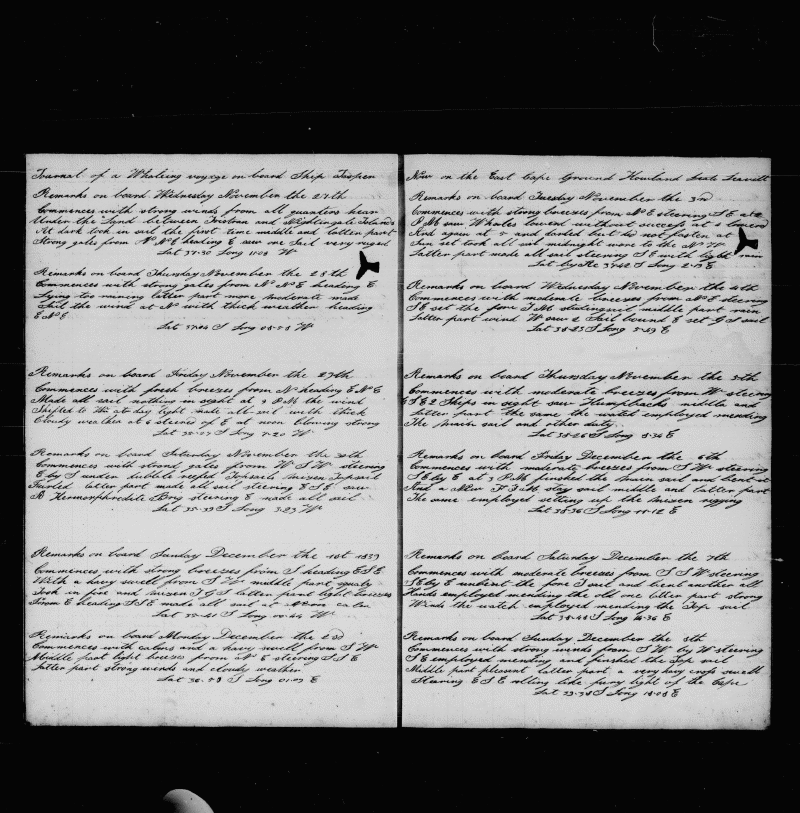 Journal of a Whaleing voyage on board Ship Jasper
Remarks on board Wednesday November the 27th
Commences with strong winds from all quarters hear
Under the Land between Tristan and Nightingale Islands
At dark took in sail the first time middle and latter part
Strong gales from N NE heading E saw one Sail very ruged
Lat 37-30 Long 11-08 W
Remarks on board Thursday November the 28th
Commences with strong gales from N NE heading E
Lying too nearing latter part more moderate made
Sail the wind at N with thick weather heading
E NE
Lat 37-04 S Long 08-58 W
Remarks on board Friday November the 29th
Commences with fresh breezes from N heading E N E
Made all sail nothing in sight at 9 PM the wind
Shifted to W at day light made all sail with thick
Cloudy weather at 6 steered E at noon blowing strong
Lat 35-57 S Long 5-20 W
Remarks on board Saturday November the 30th
Commences with strong gales from W S W steering
E by S under duble reefed Topsails mizen Topsail
Furled latter part made all sail steering E S E saw
A Hermorphredite Brig steering E made all sail
Lat 35-39 S Long 3-23 W
Remarks on board Sunday December the 1st 1839
Commences with strong breezes from S heading E S E
With a havy swell from S W middle part squaly
Took in five and mizen T G S latter part light breezes
From E heading S S E made all sail at Noon calm
Lat 35-41 S Long 00-44 W
Remarks on board Monday December the 2nd
Commences with calms and a havy swell from S W
Middle part light breeses from N E steering S S E
Latter part strong winds and cloudy weather
Lat 36-58 S Long 01-07 E
Now on the East Cape Ground Howland Seate Leavitt
Remarks on board Tuesday November the 3rd
Commences with strong breezes from N E steering S E at 2
P M saw Whales lowerd without success at 4 lowerd
And again at 5 and darted but did not fasten at
Sun set took all sail midnight wore to the N W
Latter part made all sail steering S E with light rain
Lat by Re 37-42 S Long 2-13 E
Remarks on board Wednesday November the 4th
Commences with moderate breezes from N E steering
S E set the fore T M studingsail middle part rain
Latter part wind W saw a Sail bound E set G S sail
Lat 38-23 S Long 5-49 E
Remarks on board Thursday November the 5th
Commences with moderate breezes from W steering
E S E 2 Ships in sight saw Humpbacks middle and
latter part the same the watch employed mending
The main sail and other duty
Lat 38-26 S Long 8-36 E
Remarks on board Friday December the 6th
Commences with moderate breezes from S W steering
S E by E at 3 P M finished the main sail and bent it
And a New F T M stay sail middle and latter part
The same employed setting up the mizen rigging
Lat 38-36 S Long 11-12 E
Remarks on board Saturday December the 7th
Commences with moderate breezes from S S W steering
S E by E unbent the fore sail and bent another all
Hands employed mending the old one latter part strong
Winds the watch employed mending the Top sail
Lat 38-48 S Long 14-36 E
Remarks on board Sunday December the 8th
Commences with strong winds from S W by W steering
S E employed mending and finished the Top sail
Middle part pleasent latter part a very havy cross swell
Stearing E S E rolling like fury light of the Cape
Lat 39-38 S Long 18-08 E